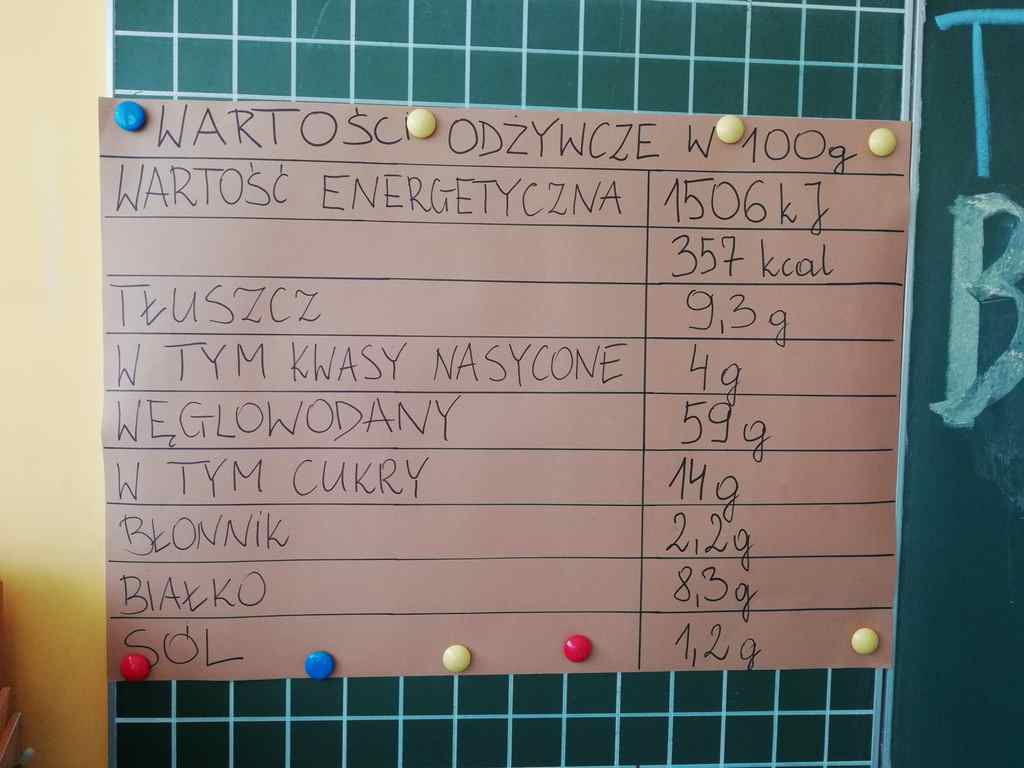 WARTOŚCI ODŻYWCZE W 100g
WARTOŚĆ ENERGETYCZNA 1506 kJ
357 kcal
TŁUSZCZ 9,3 g
W TYM KWASY NASYCONE 4 g
WĘGLOWODANY 59 g
W TYM CUKRY 14 g
BŁONNIK 2,2 g
BIAŁKO 8,3 g
SÓL 1,2 g
T
B